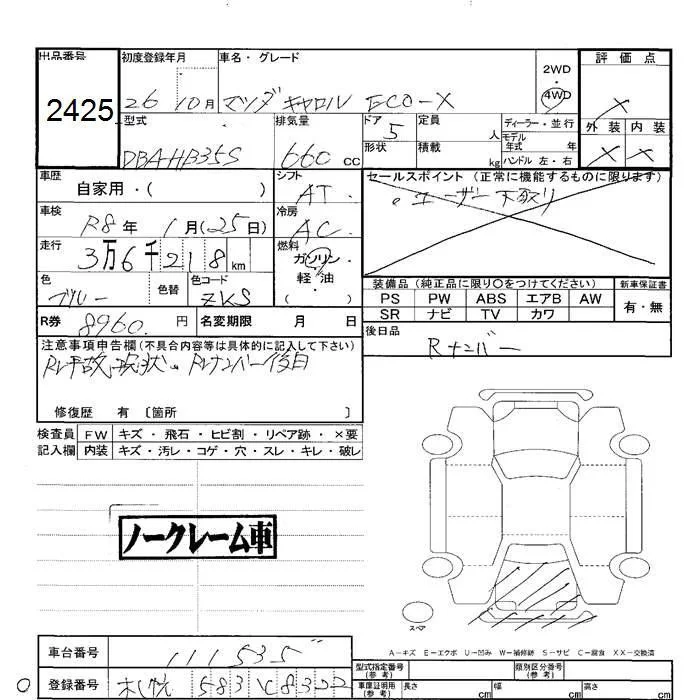 出品番号 初度登録年月 車名・グレード 2WD 4WD 評価点
2425 26 10月 マツダ キャロル ECO-X ×
型式 排気量 ドア 定員 ディーラー・並行 外装 内装
DBA-HB35S 660 cc 5 人 モデル年式 年 × ×
形状 積載 kg ハンドル 左・右
車歴 シフト セールスポイント (正常に機能するものに限ります)
自家用・( ) AT 。ユーザー下取り
車検 冷房
R8年 1月(25日) AC
走行 燃料
3万6千218km ガソリン・
軽油・
( )
色 色替 色コード 装備品 (純正品に限り○をつけてください) 新車保証書
ブルー ZKS PS PW ABS エアB AW 有・無
SR ナビ TV カワ
R券 8960. 円 名変期限 月 日 後日品
Rナンバー
注意事項申告欄(不具合内容等は具体的に記入して下さい)
R事故現状。Rナンバー後日
修復歴 有 〔箇所 〕
検査員 FW キズ・飛石・ヒビ割・リペア跡・×要
記入欄 内装 キズ・汚レ・コゲ・穴・スレ・キレ・破レ
ノークレーム車
スペア
A－キズ E－エクボ U－凹み W－補修跡 S－サビ C－腐食 XX－交換済
車台番号 111535
型式指定番号(参考) 類別区分番号(参考)
登録番号 札幌 583
車庫証明用(参考) 長さ cm 幅 cm 高さ cm